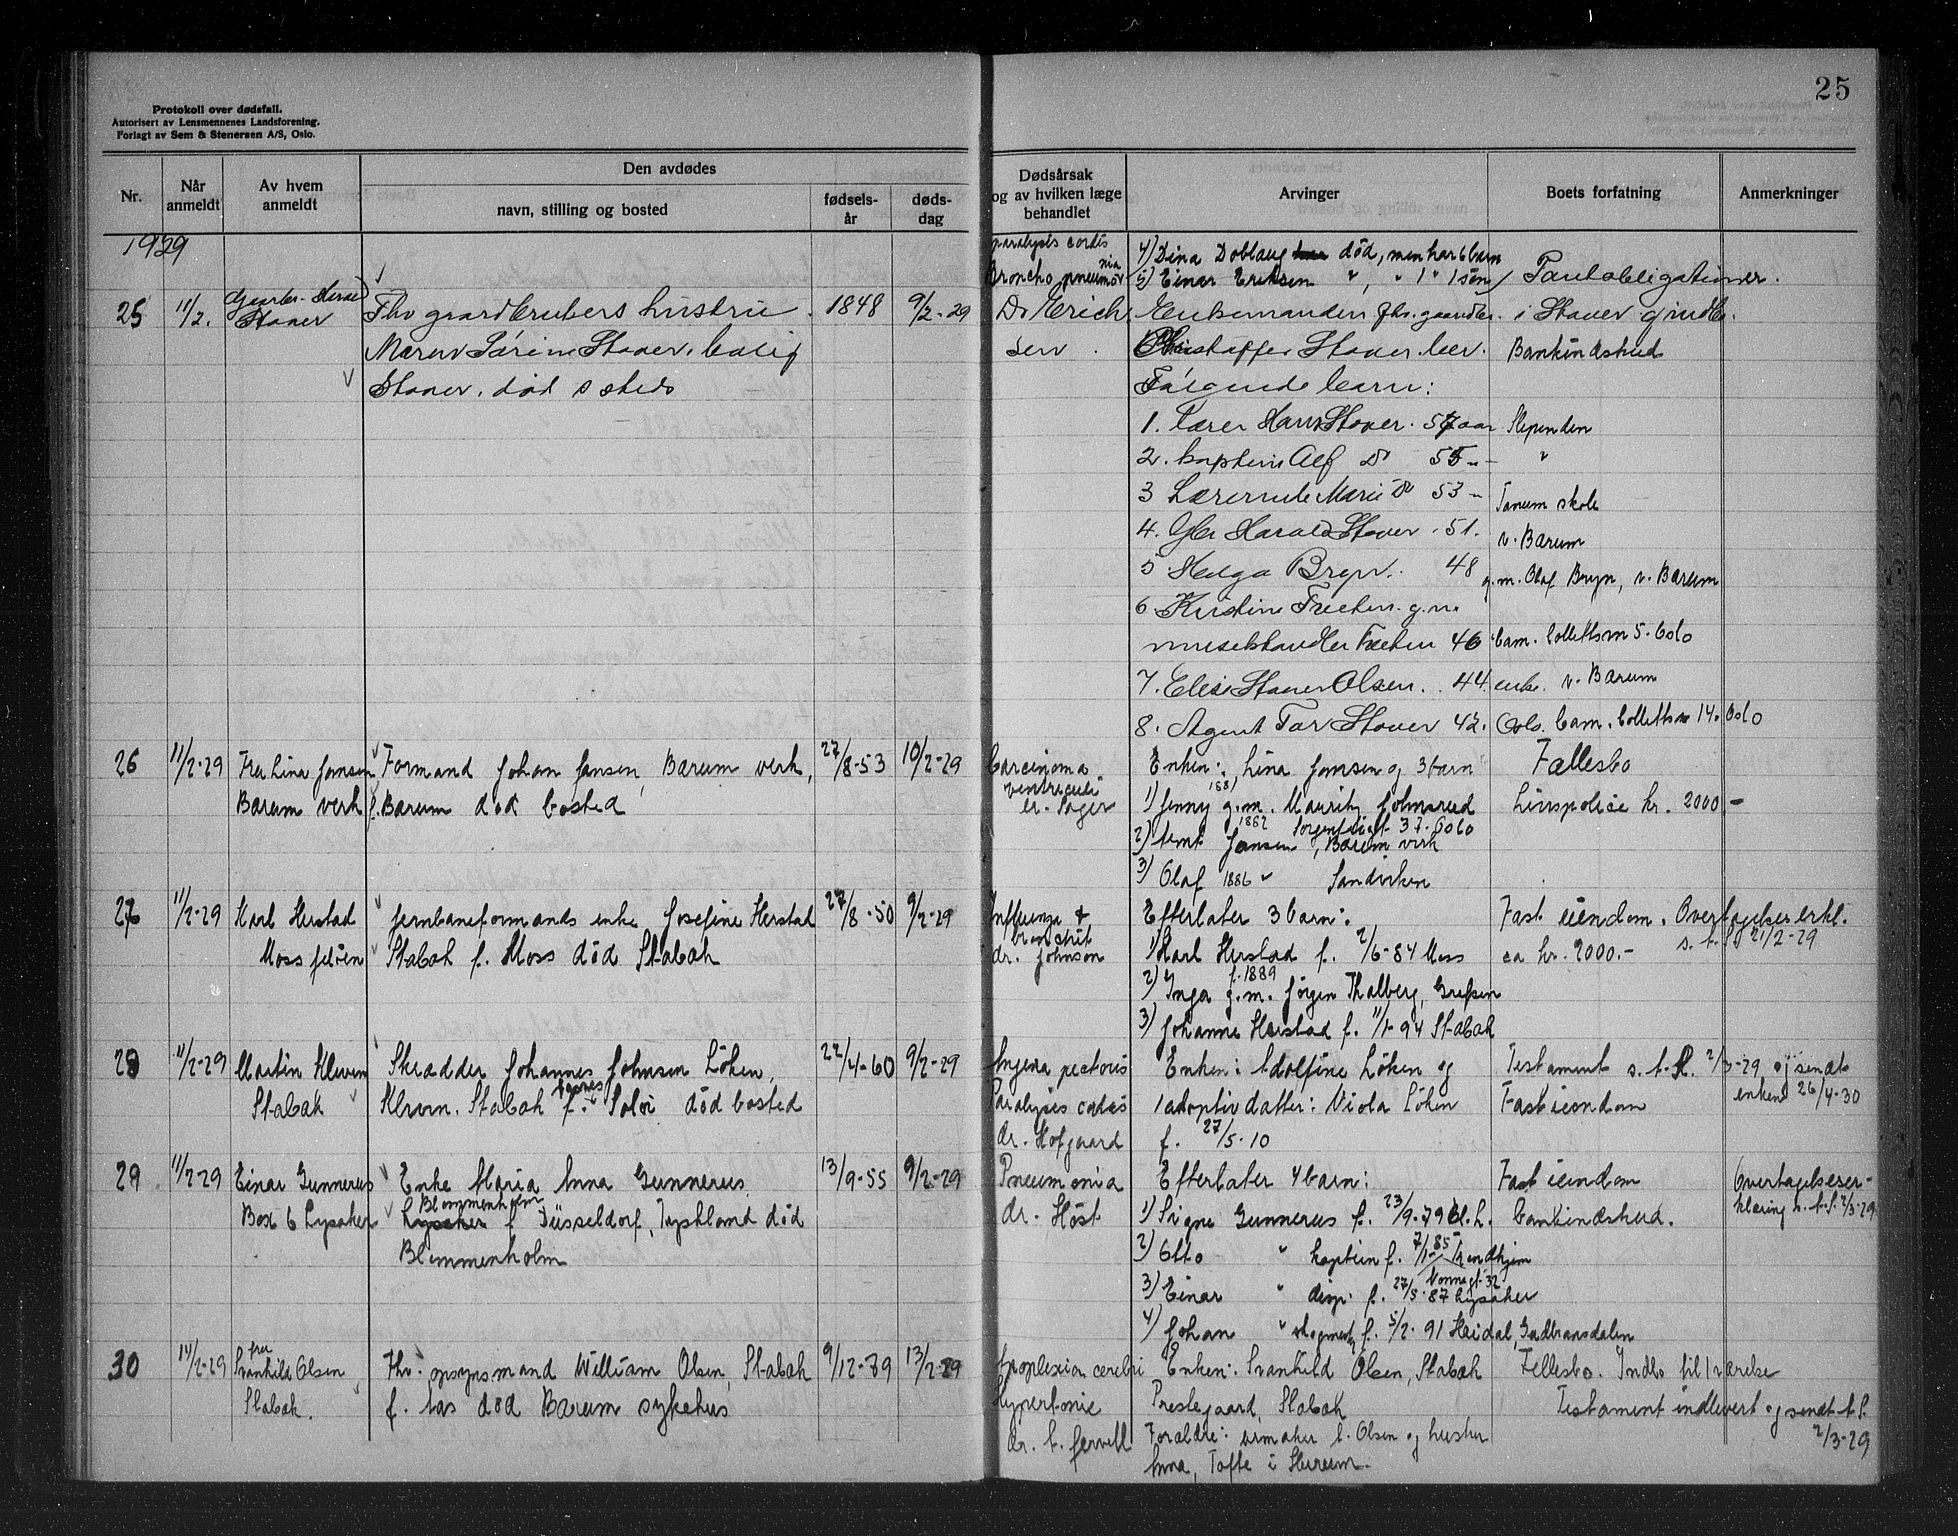 25
Protokoll over dødsfall.
Autorisert av Lensmennenes Landsforening.
Forlagt av Sem & Stenersen A/S, Oslo.
Nr.
Når anmeldt
Av hvem anmeldt
Den avdødes
navn, stilling og bosted
fødsels-år
døds-dag
Dødsårsak og av hvilken læge behandlet
Arvinger
Boets forfatning
Anmerkninger
1929
paralysis cordis
Broncho pneumonia
4) Dina Doblaug død, men har 6 barn
5) Einar Eriksen " , " 1 " 1 søn
Pantobligationer.
25 11/2. Gaardbr. Harald Staver
Fhv gaardbrukers hustru 1848 9/2-29
Maren Sørine Staver, bolig
Staver, død s steds
Dr Erich
sen
Enkemanden fhv. gaardbr.
Christoffer Staver. bær.
Følgende barn:
1. Lærer Hans Staver. 57 aar
2. Kaptein Alf Do 55 "
3 Lærerinde Marie Do 53 "
4. Gbr Harald Staver . 51.
5 Helga Bryn. 48
6 Kirstine g.m.
musikhandler 46
7. Elise Staver Olsen. . 44.
8. Agent Tor Staver 42.
i Staver grindbr.
Bankindskud
Slepende
"
Tanum skole
v. Bærum
g.m. Olaf Bryn, v. Bærum
Cam. Collettsv 5. Oslo
enke. v. Bærum
Oslo. Cam. Collettsv 14. Oslo
26 11/2-29 Fru Lina Jansen
Bærum verk
Formand Johan Jansen, Bærum verk,
f. Bærum død bosted
27/8-53 10/2-29
Carcinoma
ventriculi
dr. Sager
Enken: Lina Jansen og 3 barn
1881
1) Jenny g.m. Mauritz Holmsrud
Sorgenfrigt 37. Oslo
1882
2) Amt Jansen, Bærum verk
3) Olaf 1886 " Sandviken
Fællesbo
Livspolice kr. 2000.-
27 11/2-29 Karl Herstad
Moss
Jernbaneformands enke Josefine Herstad
Stabæk f. Moss død Stabæk
27/8-50 9/2-29
Influenza &
bronchit
dr. Johnson
Efterlater 3 barn:
1) Karl Herstad f. 2/6-84 Moss
f. 1889
2) Inga g.m. Jørgen Thalberg, Grefsen
3) Johanne Herstad f. 11/1-94 Stabæk
Fast eiendom. Overtagelseserkl.
s.t.s. 21/2-29
ca kr. 2000.-
28 11/2-29 Martin Kleven
Stabæk
Skrædder Johannes Johnsen Løken,
Kleven. Stabæk f. Solør død bosted
22/4-60 9/2-29
Angina pectoris
Paralysis cordis
dr. Hofgaard
Enken: Adolfine Løken og
1 adoptivdatter: Viola Løken
f. 27/5-10
Testament s.t.S. 2/3-29 og sendt
enken 26/4-30
Fast eiendom
29 11/2-29 Einar Gunnerus
Box 6 Lysaker
Enke Maria Anna Gunnerus
Blommenholm
Lysaker f Düsseldorf, Tyskland død
Blommenholm
13/9-55 9/2-29
Pneumonia
dr. Høst
Efterlater 4 barn:
1) Signe Gunnerus f. 23/9-79 Bl.h.
2) Otto " kaptein f. 7/1-85 Trondhjem
3) Einar " disp. f. 27/5-87 Lysaker
4) Johan " f. 5/2-91 Heidal, Gudbransdalen
Fast eiendom
bankindskud.
Overtagelseser-
klæring s.t.s. 2/3-29
30 14/2-29 fru
Svanhild Olsen
Stabæk.
Fhv. opsynsmand William Olsen, Stabæk
f. Aas død Bærum sykehus
9/12-79 13/2-29
Apoplexia cerebri
Hypertonie
dr. C. Jervell
Enken: Svanhild Olsen, Stabæk
Prestegaard, Stabæk
Forældre: urmaker A. Olsen og hustru
Anna, Tofte i Hurum.
Fellesbo. Indbo til 1 værelse
Testament indlevert og sendt t.S.
2/3-29